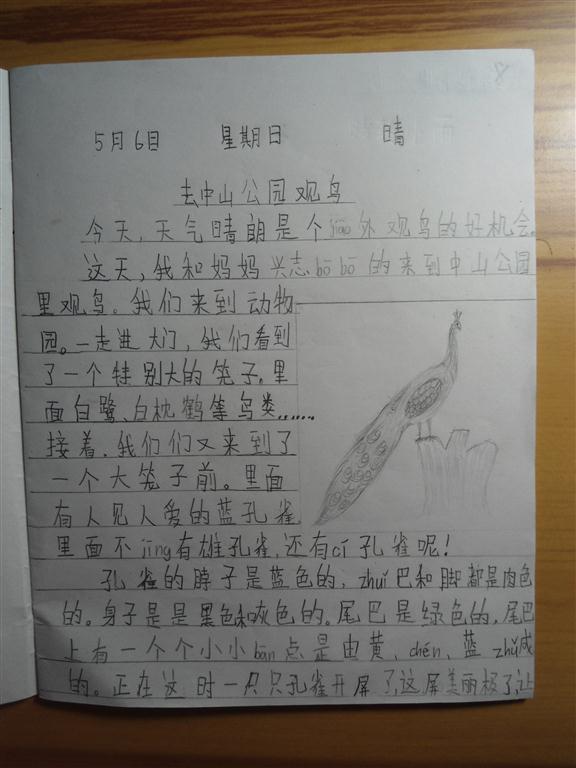 8
5月6日 星期日 晴
去中山公园观鸟
今天,天气晴朗是个jiāo外观鸟的好机会。
这天,我和妈妈兴志bō bō的来到中山公园
里观鸟。我们来到动物
园。一走进大门,我们看到
了一个特别大的笼子。里
面白鹭、白枕鹤等鸟类……
接着,我们们又来到了
一个大笼子前。里面
有人见人爱的蓝孔雀
里面不jǐng有雄孔雀,还有cí孔雀呢!
孔雀的脖子是蓝色的,zhuǐ巴和脚都是肉色
的。身子是是黑色和灰色的。尾巴是绿色的,尾巴
上有一个个小小bān点是由黄、chén、蓝zhǔ成
的。正在这时一只只孔雀开屏了,这屏美丽极了,让